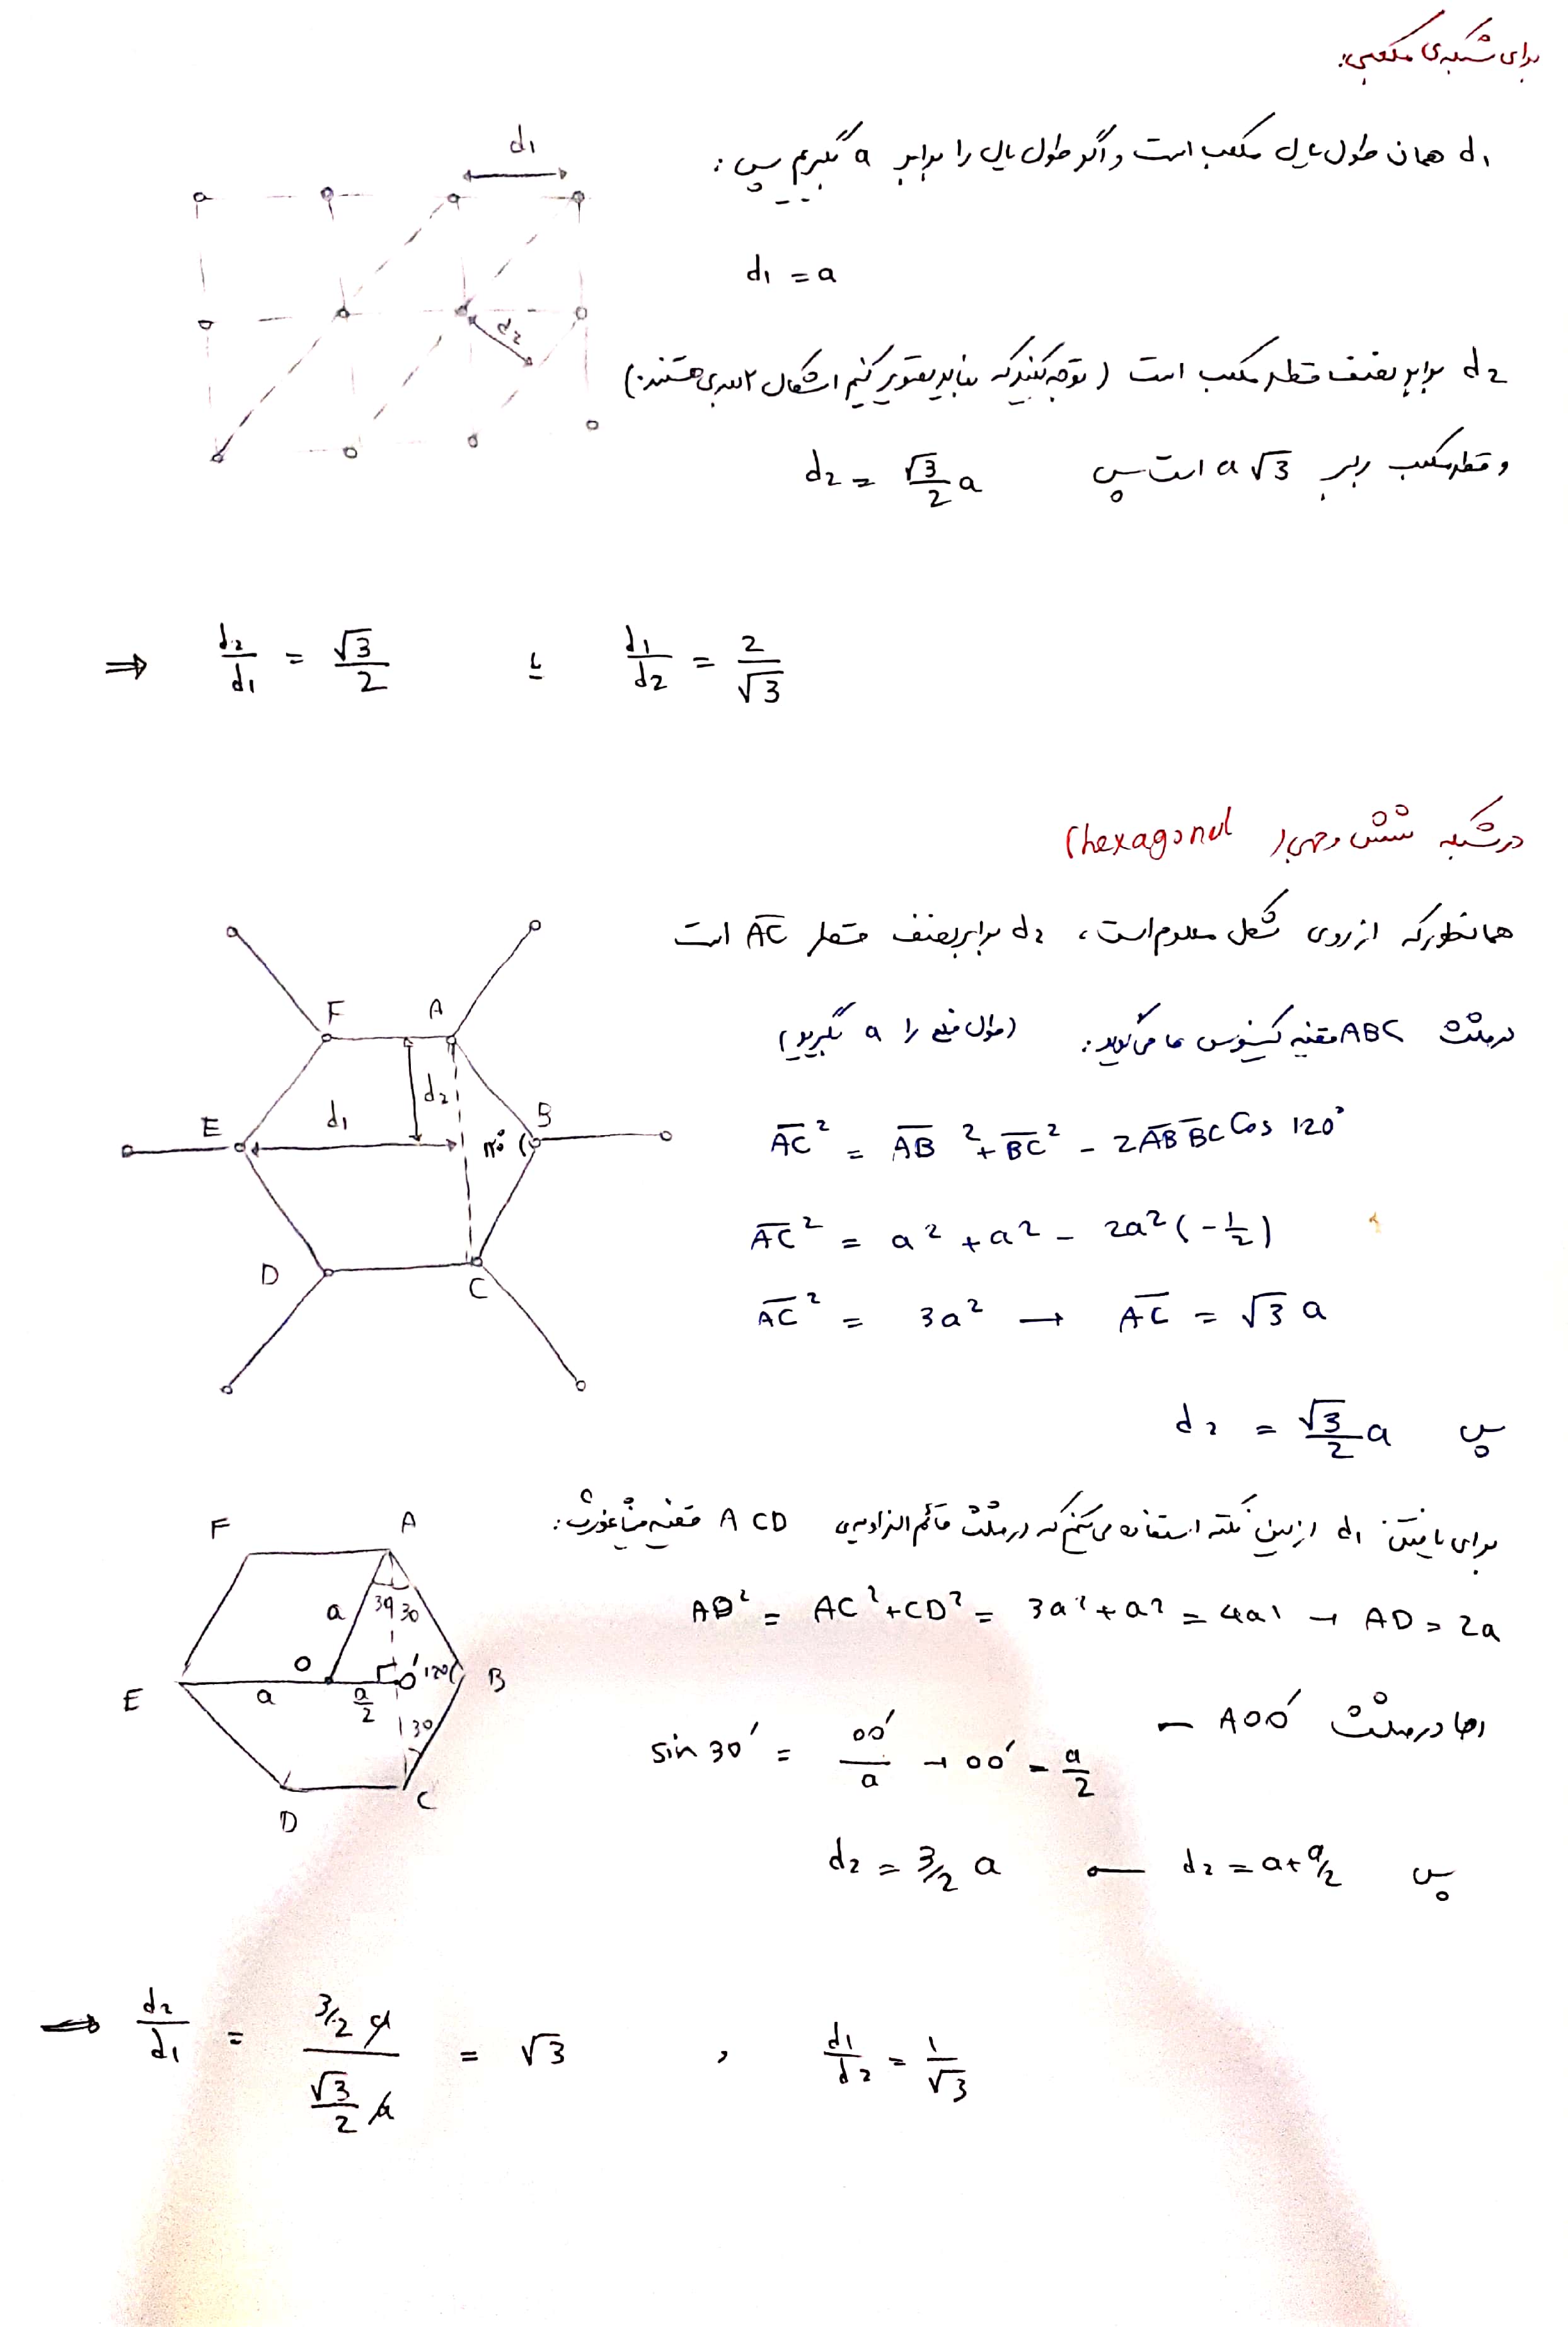 برای شبکه‌ی مکعبی:
d1 همان طول یال مکعب است و اگر طول یال را برابر a بگیریم پس:
d1
d1 = a
d2
d2 برابر نصف قطر مکعب است (توجه کنید که نباید تصور کنیم اشکال ۲ بعدی هستند:)
و قطر مکعب برابر a√3 است پس d2 = √3/2 a
⇒ d2/d1 = √3/2 یا d1/d2 = 2/√3
در شبکه شش وجهی (hexagonal)
همانطور که از روی شکل معلوم است، d2 برابر نصف قطر AC است
در مثلث ABC قضیه کسینوس ها می‌گوید: (طول ضلع را a بگیرید)
F A
E d1 d2 B
۱۲۰°
D C
AC² = AB² + BC² - 2AB BC Cos 120°
AC² = a² + a² - 2a²(-1/2)
AC² = 3a² → AC = √3 a
پس d2 = √3/2 a
برای یافتن d1 از این نکته استفاده می‌کنیم که در مثلث قائم الزاویه‌ی ACD قضیه فیثاغورث:
AD² = AC² + CD² = 3a² + a² = 4a² → AD = 2a
F A
a 30 30
E a O a/2 O' 120 B
30
D C
اما در مثلث AOO' –
sin 30° = OO'/a → OO' = a/2
پس d2 = a + a/2 ← d2 = 3/2 a
⇒ d2/d1 = 3/2 a / √3/2 a = √3 , d1/d2 = 1/√3